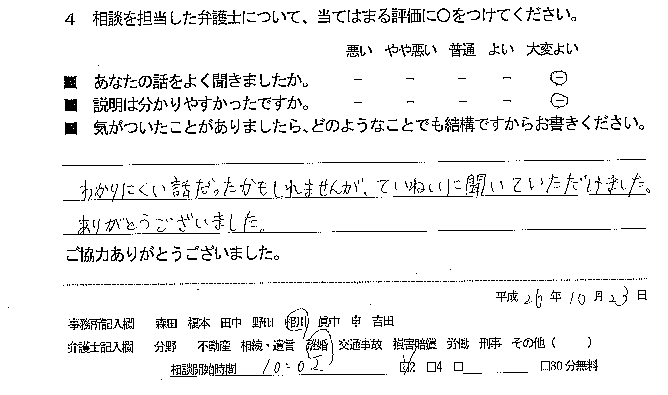 4 相談を担当した弁護士について、当てはまる評価に○をつけてください。
悪い やや悪い 普通 よい 大変よい
■ あなたの話をよく聞きましたか。 － － － － －
■ 説明は分かりやすかったですか。 － － － － －
■ 気がついたことがありましたら、どのようなことでも結構ですからお書きください。
わかりにくい話だったかもしれませんが、ていねいに聞いていただけました。
ありがとうございました。
ご協力ありがとうございました。
平成 26 年 10 月 23 日
事務所記入欄 森田 榎本 田中 野田 相川 眞中 幸 吉田
弁護士記入欄 分野 不動産 相続・遺言 離婚 交通事故 損害賠償 労働 刑事 その他 ( )
相談開始時間 10:02 ☑2 □4 □ □30分無料